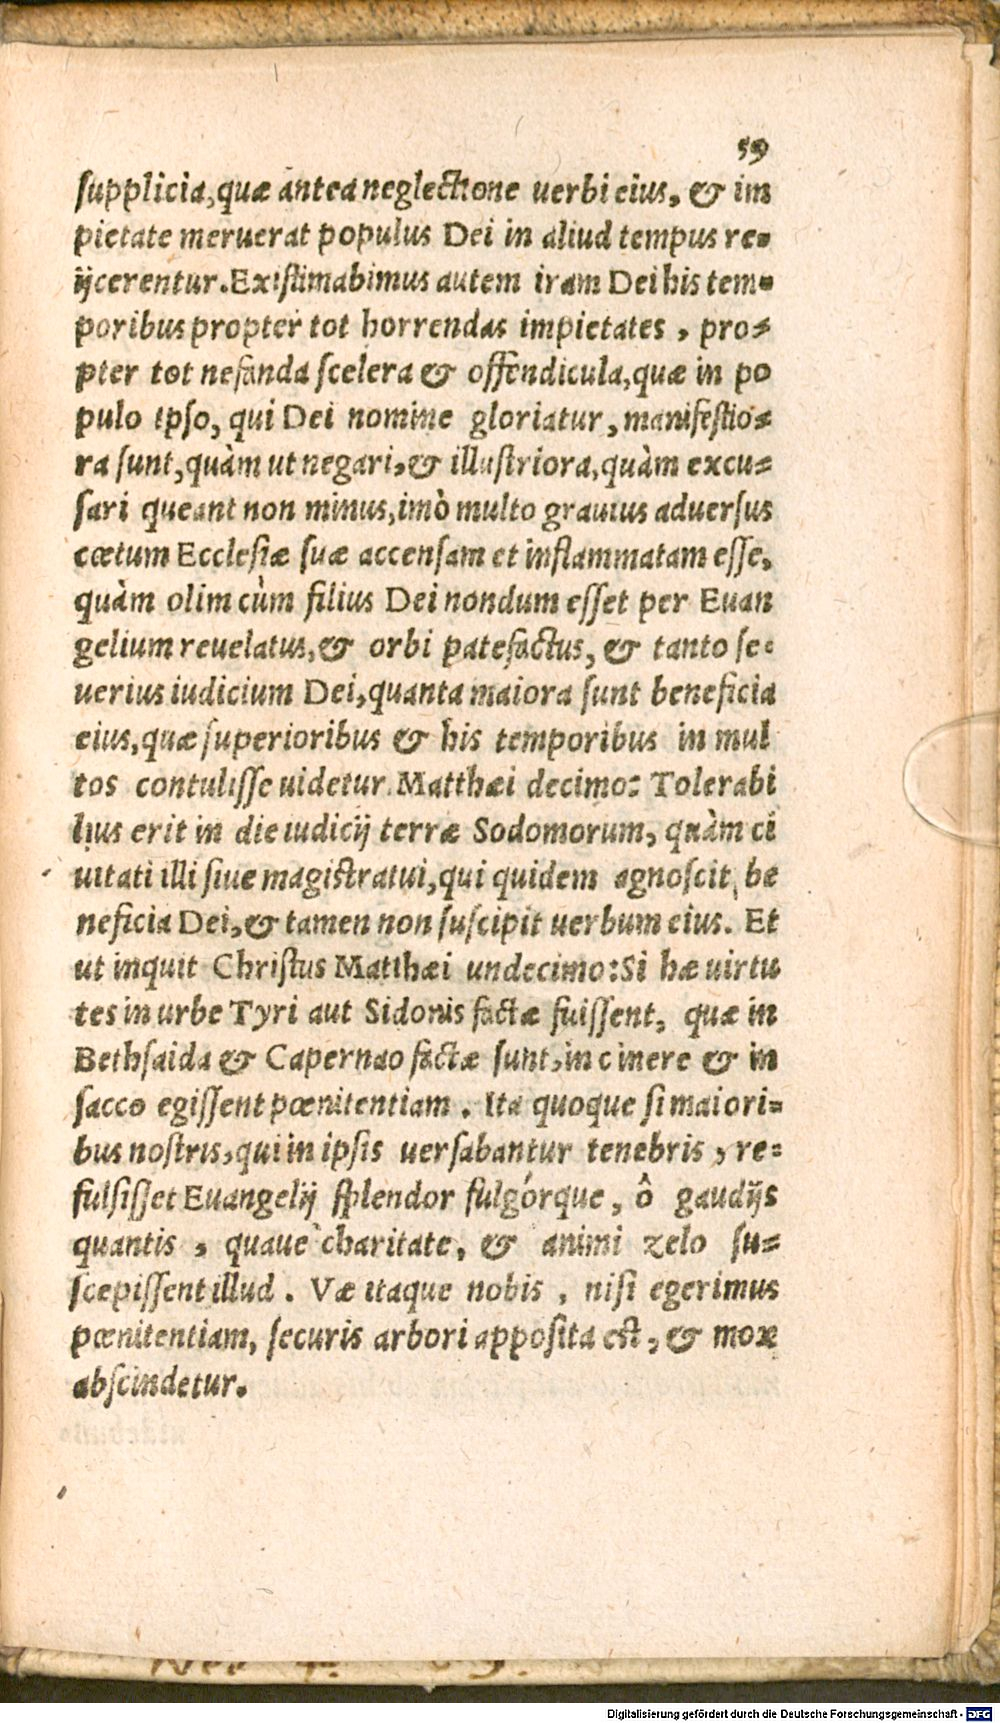 59
supplicia, quæ antea neglectione uerbi eius, & im
pietate meruerat populus Dei in aliud tempus re-
ijcerentur. Existimabimus autem iram Dei his tem-
poribus propter tot horrendas impietates, pro-
pter tot nefanda scelera & offendicula, quæ in po
pulo ipso, qui Dei nomine gloriatur, manifestio-
ra sunt, quàm ut negari, & illustriora, quàm excu-
sari queant non minus, imò multo grauius aduersus
cœtum Ecclesiæ suæ accensam et inflammatam esse,
quàm olim cùm filius Dei nondum esset per Euan
gelium reuelatus, & orbi patefactus, & tanto se-
uerius iudicium Dei, quanta maiora sunt beneficia
eius, quæ superioribus & his temporibus in mul
tos contulisse uidetur. Matthæi decimo: Tolerabi
lius erit in die iudicij terræ Sodomorum, quàm ci
uitati illi siue magistratui, qui quidem agnoscit be
neficia Dei, & tamen non suscipit uerbum eius. Et
ut inquit Christus Matthæi undecimo: Si hæ uirtu
tes in urbe Tyri aut Sidonis factæ fuissent, quæ in
Bethsaida & Capernao factæ sunt, in cinere & in
sacco egissent pœnitentiam. Ita quoque si maiori-
bus nostris, qui in ipsis uersabantur tenebris, re-
fulsisset Euangelij splendor fulgórque, ô gaudijs
quantis, quaue charitate, & animi zelo su-
scepissent illud. Væ itaque nobis, nisi egerimus
pœnitentiam, securis arbori apposita est, & mox
abscindetur.
Digitalisierung gefördert durch die Deutsche Forschungsgemeinschaft - DFG